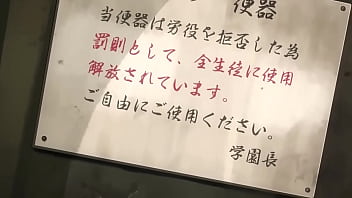 便器
当便器は労役を拒否した為
罰則として、全生徒に使用
解放されています。
ご自由にご使用ください。
学園長